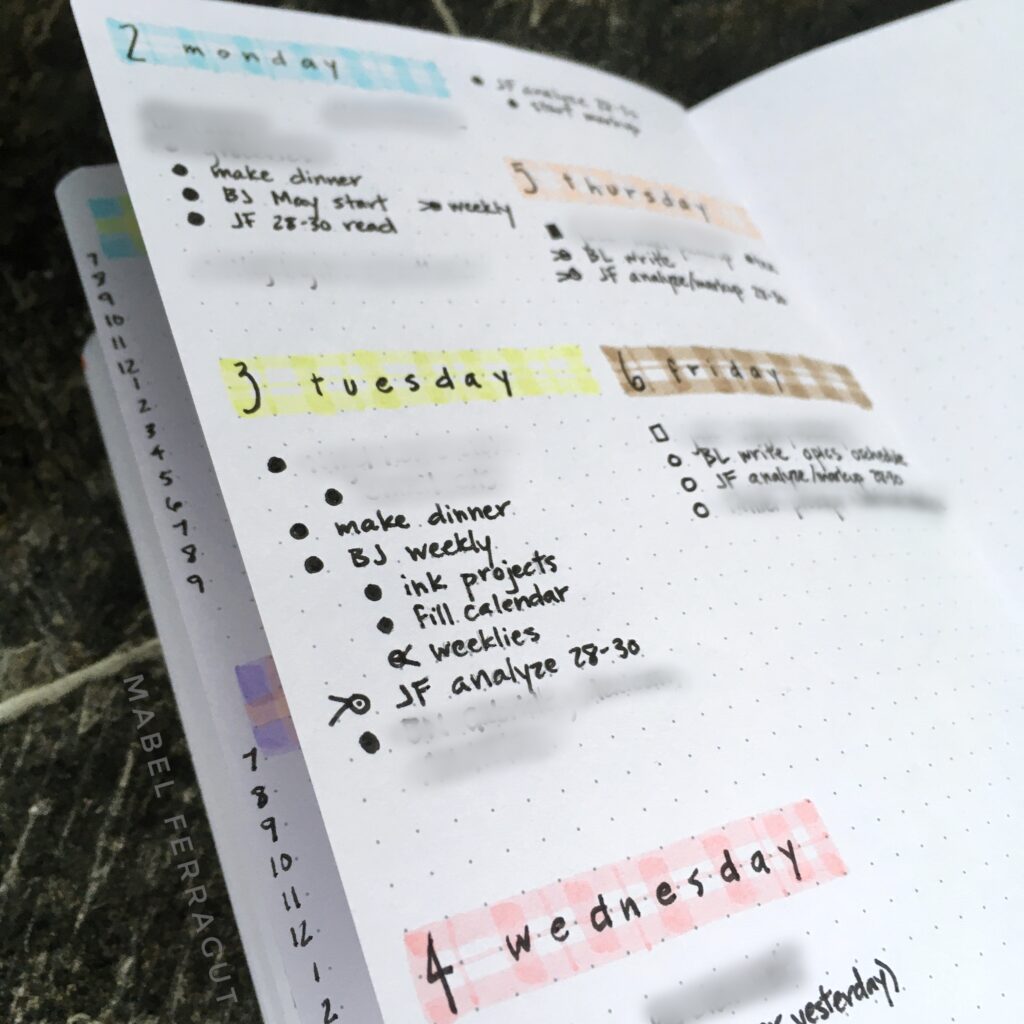 2 monday
make dinner
BJ May start > weekly
JF 28-30 read
3 tuesday
make dinner
BJ weekly
ink projects
fill calendar
weeklies
JF analyze 28-30
4 wednesday
yesterday)
JF analyze 28-30
start markup
5 thursday
BL write
JF analyze/markup 28-30
6 friday
BL write
JF analyze/markup 28-30
7
8
9
10
11
12
1
2
3
4
5
6
7
8
9
7
8
9
10
11
12
1
2
MABEL FERRAGUT